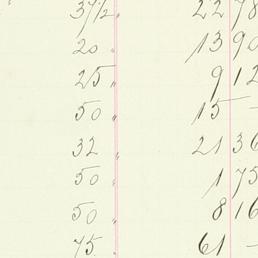 37½ " 22 78
20 " 13 90
25 " 9 12
50 " 15 —
32 " 21 36
50 " 1 75
50 " 8 16
75 " 61 —